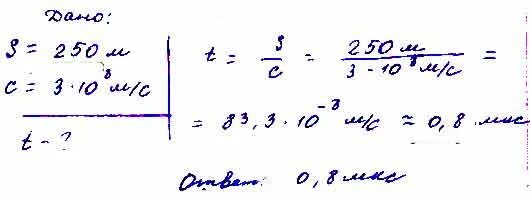 Дано:
S = 250 м
c = 3·10⁸ м/с
t - ?
t = S/c = 250 м / 3·10⁸ м/с =
= 83,3·10⁻⁸ м/с ≈ 0,8 мкс
Ответ: 0,8 мкс